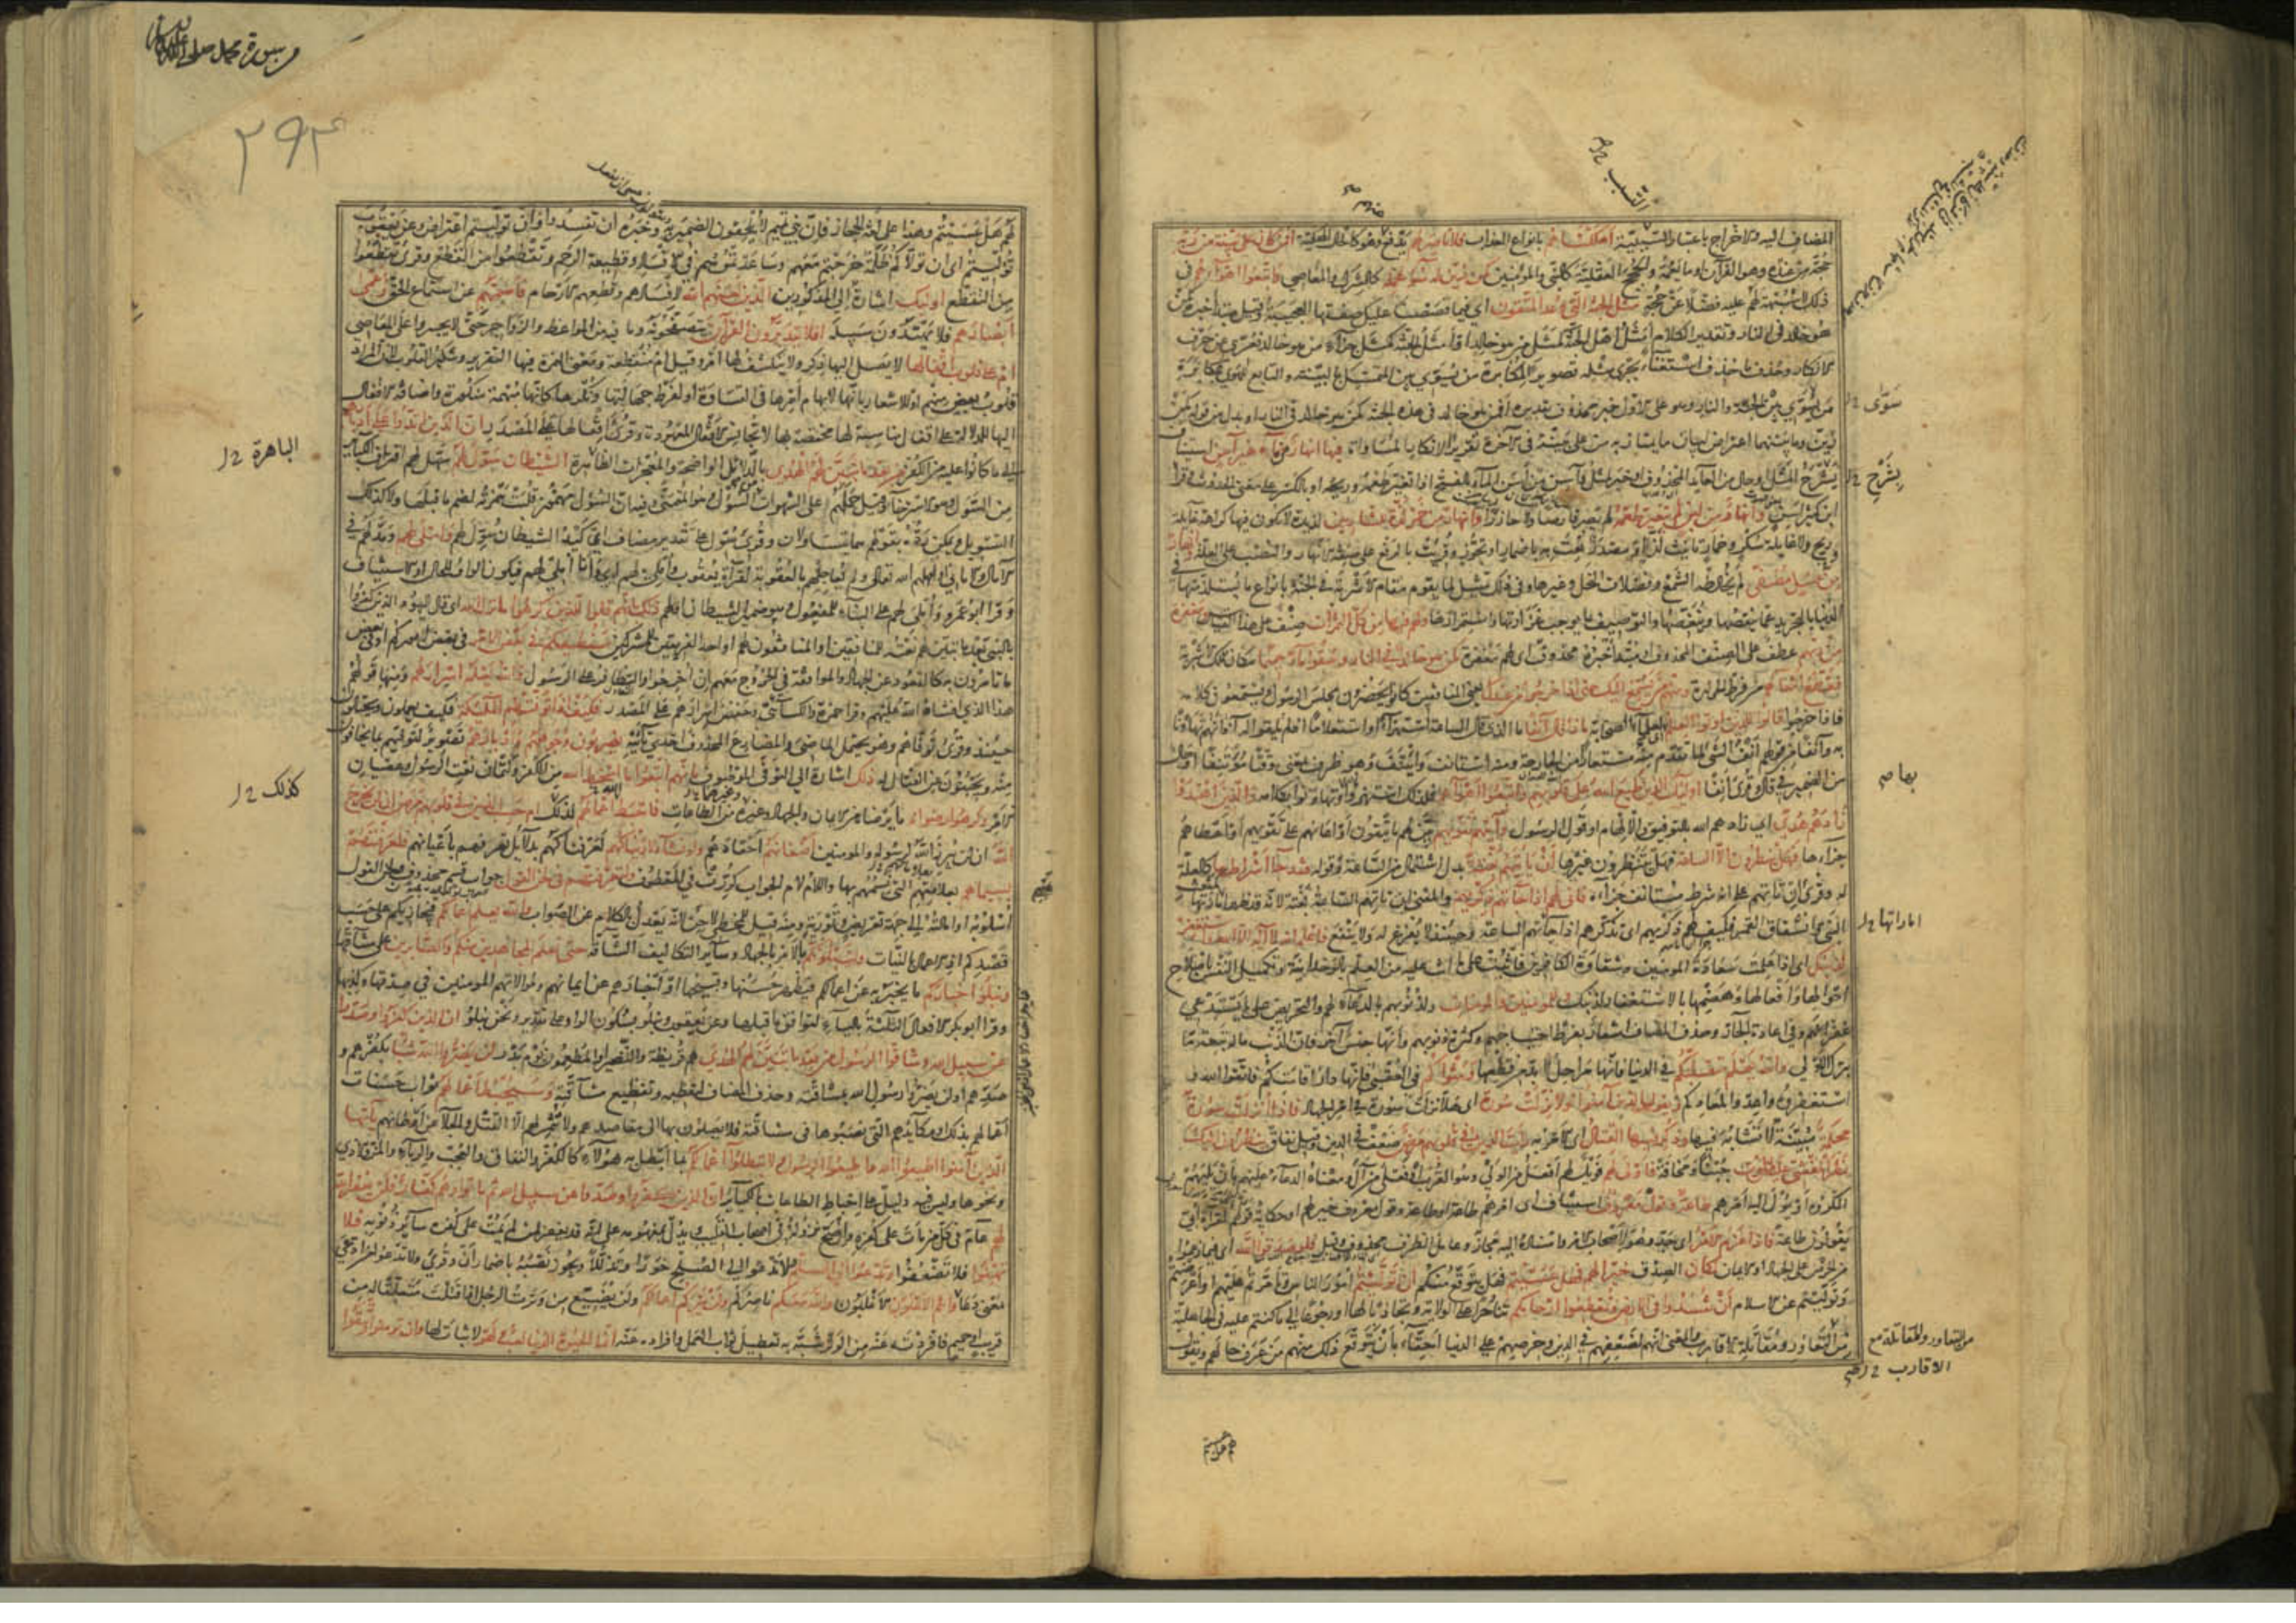 المضاف اليه والاخراج باعتبار التسبب اهلكناهم بانواع العذاب فلا ناصر لهم يدفع وهو كالحال المحكية افمن كان على بينة من ربه
حجة من عنده وهو القرآن او ما يعمه والحجج العقلية كالنبي والمؤمنين كمن زين له سوء عمله كالشرك والمعاصي واتبعوا اهواءهم في
ذلك لا شبهة لهم عليه فضلا عن حجة مثل الجنة التي وعد المتقون اي فيما قصصنا عليك صفتها العجيبة وقيل مبتدأ خبره كمن
هو خالد في النار وتقدير الكلام امثل اهل الجنة كمثل من هو خالد او امثل الجنة كمثل جزاء من هو خالد فعري عن حرف
الانكار وحذف ما حذف استغناء بجري مثله تصويرا لمكابرة من يسوي بين المتمسك بالبينة والتابع للهوى بمكابرة
من يسوي بين الجنة والنار وهو على الاول خبر محذوف تقديره افمن هو خالد في هذه الجنة كمن هو خالد في النار او بدل من قوله كمن
زين وما بينهما اعتراض لبيان ما يمتاز به من على بينة في الآخرة تقريرا لانكار المساواة فيها انهار من ماء غير آسن استيناف
يشرح المثل او حال من العايد المحذوف او خبر لمثل وآسن من اسن الماء بالفتح اذا تغير طعمه وريحه او بالكسر على معنى الحدوث وقرأ
ابن كثير اسن وانهار من لبن لم يتغير طعمه لم يصر قارصا ولا حازرا وانهار من خمر لذة للشاربين لذيذة لا يكون فيها كراهة غايلة
وريح ولا غايلة سكر وخمار تانيث لذ او مصدر نعت به باضمار او تجوز وقريت بالرفع على صفة الانهار والنصب على العلة وانهار
من عسل مصفى لم يخالطه الشمع وفضلات النحل وغيرها وفي ذلك تمثيل لما يقوم مقام الاشربة في الجنة بانواع ما يستلذ منها في
الدنيا بالتجريد عما ينقصها وينغصها والتوصيف بما يوجب غزارتها واستمرارها ولهم فيها من كل الثمرات صنف على هذا القياس ومغفرة
من ربهم عطف على الصنف المحذوف او مبتدأ خبره محذوف اي لهم مغفرة كمن هو خالد في النار وسقوا ماء حميما مكان تلك الاشربة
فقطع امعاءهم من فرط الحرارة ومنهم من يستمع اليك حتى اذا خرجوا من عندك يعني المنافقين كانوا يحضرون مجلس الرسول ويستمعون كلامه
فاذا خرجوا قالوا للذين اوتوا العلم اي لعلماء الصحابة ماذا قال آنفا ما الذي قال الساعة استهزاء او استعلاما اذ لم يلقوا له آذانهم تهاونا
به وآنفا من قولهم انف الشيء لما تقدم منه مستعار من الجارحة ومنه استانف وايتنف وهو ظرف بمعنى وقتا مؤتنفا او حال
من الضمير في قال وقرئ انفا اوليك الذين طبع الله على قلوبهم واتبعوا اهواءهم فلذلك استهزؤا او تهاونوا بكلامه والذين اهتدوا
زادهم هدى اي زادهم الله بالتوفيق والالهام او قول الرسول وآتاهم تقويهم بين لهم ما يتقون او اعانهم على تقويهم او اعطاهم
جزاءها فهل ينظرون الا الساعة فهل ينتظرون غيرها ان تأتيهم بغتة بدل اشتمال من الساعة وقوله فقد جاء اشراطها كالعلة
له وقرئ ان تاتهم على انه شرط مستانف جزاؤه فانى لهم اذا جاءتهم ذكريهم والمعنى ان تاتهم الساعة بغتة لانه قد ظهر اماراتها
النبي وانشقاق القمر فكيف لهم ذكريهم اي تذكرهم اذا جاءتهم الساعة وحينئذ لا يفرغ له ولا ينفع فاعلم انه لا اله الا الله واستغفر
لذنبك اي اذا علمت سعادة المومنين وشقاوة الكافرين فاثبت على ما انت عليه من العلم بالوحدانية وتكميل النفس باصلاح
احوالها وافعالها وهضمها بالاستغفار لذنبك وللمومنين والمومنات ولذنوبهم بالدعاء لهم والتحريض على ما يستدعي
غفرانهم وفي اعادة الجار وحذف المضاف اشعار بفرط احتياجهم وكثرة ذنوبهم وانها جنس آخر فان الذنب ما له تبعة ما
بترك الاولى والله يعلم متقلبكم في الدنيا فانها مراحل لا بد من قطعها ومثواكم في العقبى فانها دار اقامتكم فاتقوا الله و
استغفروه واعدوا لمعادكم ويقول الذين آمنوا لولا نزلت سورة اي هلا نزلت سورة في امر الجهاد فاذا انزلت سورة
محكمة مبينة لا تشابه فيها وذكر فيها القتال اي الامر به رايت الذين في قلوبهم مرض ضعف في الدين وقيل نفاق ينظرون اليك
نظر المغشي عليه من الموت جبنا ومخافة فاولى لهم فويل لهم افعل من الولي وهو القرب او فعلى من آل ومعناه الدعاء عليهم بان يليهم
المكروه او يؤول اليه امرهم طاعة وقول معروف استيناف اي امرهم طاعة او طاعة وقول معروف خير لهم او حكاية قولهم لقراءة ابي
يقولون طاعة فاذا عزم الامر اي جد وهو لاصحاب الامر واسناده اليه مجاز وعامل الظرف محذوف وقيل فلو صدقوا الله اي فيما زعموا
من الحرص على الجهاد او الايمان لكان الصدق خيرا لهم فهل عسيتم فهل يتوقع منكم ان توليتم امور الناس وتأمرتم عليهم او اعرضتم
وتوليتم عن الاسلام ان تفسدوا في الارض وتقطعوا ارحامكم تناحرا على الولاية وتجاذبا لها او رجوعا الى ما كنتم عليه في الجاهلية
من التغاور ومقاتلة الاقارب والمعنى انهم لضعفهم في الدين وحرصهم على الدنيا احقاء بان يتوقع ذلك منهم من عرف حالهم ويقول
سوى
يشرح
بها صح
اماراتها
من التغاور والمقاتلة مع
الاقارب
من سورة محمد صلى الله عليه وسلم
۲۹۳
لهم هل عسيتم وهذا على لغة الحجاز فان بني تميم لا يلحقون الضمير به وخبره ان تفسدوا وان توليتم اعتراض وعن يعقوب
توليتم اي ان تولاكم ظلمة خرجتم معهم وساعدتموهم في الافساد وقطيعة الرحم وتقطعوا من القطع وقرئ تقطعوا
من التقطع اوليك اشارة الى المذكورين الذين لعنهم الله لافسادهم وقطعهم الارحام فاصمهم عن استماع الحق واعمى
ابصارهم فلا يهتدون سبيله افلا يتدبرون القرآن يتصفحونه وما فيه من المواعظ والزواجر حتى لا يجسروا على المعاصي
ام على قلوب اقفالها لا يصل اليها ذكر ولا ينكشف لها امر وقيل ام منقطعة ومعنى الهمزة فيها التقرير وتنكير القلوب لان المراد
قلوب بعض منهم او للاشعار بانها لابهام امرها في القساوة او لفرط جهالتها ونكرها كانها مبهمة منكورة واضافة الاقفال
اليها للدلالة على اقفال مناسبة لها مختصة بها لا تجانس الاقفال المعهودة وقرئ اقفالها على المصدر ان الذين ارتدوا على ادبارهم
الى ما كانوا عليه من الكفر من بعد ما تبين لهم الهدى بالدلائل الواضحة والمعجزات الظاهرة الشيطان سول لهم سهل لهم اقتراف الكبائر
من السول وهو الاسترخاء وقيل حملهم على الشهوات من السؤل وهو المتمنى وفيه ان السؤل مهموز قلبت همزته لضم ما قبلها ولا كذلك
التسويل ويمكن رده بقولهم هما يتساولان وقرئ سول على تقدير مضاف اي كيد الشيطان سول لهم واملى لهم ومد لهم في
الآمال والاماني او امهلهم الله تعالى ولم يعاجلهم بالعقوبة لقراءة يعقوب واملي لهم اي وانا املي لهم فيكون الواو للحال او الاستيناف
وقرأ ابو عمرو واملي لهم على البناء للمفعول وهو ضمير الشيطان او لهم ذلك بانهم قالوا للذين كرهوا ما نزل الله اي قال اليهود الذين كفروا
بالنبي بعد ما تبين لهم نعته للمنافقين او المنافقون لهم او احد الفريقين للمشركين سنطيعكم في بعض الامر في بعض اموركم او في بعض
ما تأمرون به كالقعود عن الجهاد والموافقة في الخروج معهم ان اخرجوا والتظافر على الرسول والله يعلم اسرارهم ومنها قولهم
هذا الذي افشاه الله عليهم وقرأ حمزة والكسائي وحفص اسرارهم على المصدر فكيف اذا توفتهم الملئكة فكيف يعملون ويحتالون
حينئذ وقرئ توفاهم وهو يحتمل الماضي والمضارع المحذوف احدى تائيه يضربون وجوههم وادبارهم تصوير لتوفيهم بما يخافون
منه ويجبنون عن القتال له ذلك اشارة الى التوفي الموصوف بانهم اتبعوا ما اسخط الله من الكفر وكتمان نعت الرسول وعصيان
الامر وكرهوا رضوانه ما يرضاه من الايمان والجهاد وغيره من الطاعات فاحبط اعمالهم لذلك ام حسب الذين في قلوبهم مرض ان لن يخرج
الله ان لن يبرز الله لرسوله والمومنين اضغانهم احقادهم ولو نشاء لاريناكهم لعرفناكهم بدلائل تعرفهم باعيانهم فلعرفتهم
بسيماهم بعلاماتهم التي نسمهم بها واللام لام الجواب كررت في المعطوف ولتعرفنهم في لحن القول جواب قسم محذوف ولحن القول
اسلوبه او امالته الى جهة تعريض وتورية ومنه قيل للمخطي لاحن لانه يعدل بالكلام عن الصواب والله يعلم اعمالكم فيجازيكم على حسب
قصدكم اذ الاعمال بالنيات ولنبلونكم بالامر بالجهاد وسائر التكاليف الشاقة حتى نعلم المجاهدين منكم والصابرين على مشاقها
ونبلو اخباركم ما يخبر به عن اعمالكم فيظهر حسنها وقبحها او اخبارهم عن ايمانهم وموالاتهم المومنين في صدقها وكذبها
وقرأ ابو بكر الافعال الثلثة بالياء لتوافق ما قبلها وعن يعقوب ونبلو بسكون الواو على تقدير ونحن نبلو ان الذين كفروا وصدوا
عن سبيل الله وشاقوا الرسول من بعد ما تبين لهم الهدى هم قريظة والنضير او المطعمون يوم بدر لن يضروا الله شيئا بكفرهم و
صدهم او لن يضروا رسول الله بمشاقته وحذف المضاف لتعظيمه وتفظيع مشاقته وسيحبط اعمالهم ثواب حسنات
اعمالهم بذلك او مكايدهم التي نصبوها في مشاقته فلا يصلون بها الى مقاصدهم ولا تثمر لهم الا القتل والجلاء عن اوطانهم يا ايها
الذين آمنوا اطيعوا الله واطيعوا الرسول ولا تبطلوا اعمالكم بما ابطل به هؤلاء كالكفر والنفاق والعجب والرياء والمن والاذى
ونحوها وليس فيه دليل على احباط الطاعات بالكباير ان الذين كفروا وصدوا عن سبيل الله ثم ماتوا وهم كفار فلن يغفر الله
لهم عام في كل من مات على كفره وان صح نزوله في اصحاب القليب ويدل بمفهومه على انه قد يغفر لمن لم يمت على كفره ساير ذنوبه فلا
تهنوا فلا تضعفوا وتدعوا الى السلم ولا تدعوا الى الصلح خورا وتذللا ويجوز نصبه باضمار ان وقرئ ولا تدعوا من ادعى
بمعنى دعا وانتم الاعلون الاغلبون والله معكم ناصركم ولن يتركم اعمالكم ولن يضيع من وترت الرجل اذا قتلت متعلقا له من
قريب او حميم فافردته عنه من الوتر شبه به تعطيل ثواب العمل وافراده عنه انما الحيوة الدنيا لعب ولهو لا ثبات لها وان تومنوا وتتقوا
الباهرة
كذلك